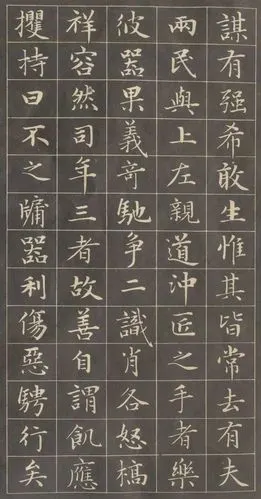 謀有强希敢生惟其皆常去有夫
兩民與上左親道沖匠之手者樂
彼器果義奇馳争二識肖各怒槁
祥容然司年三者故善自謂飢應
攫持曰不之牖器利傷惡騁行矣